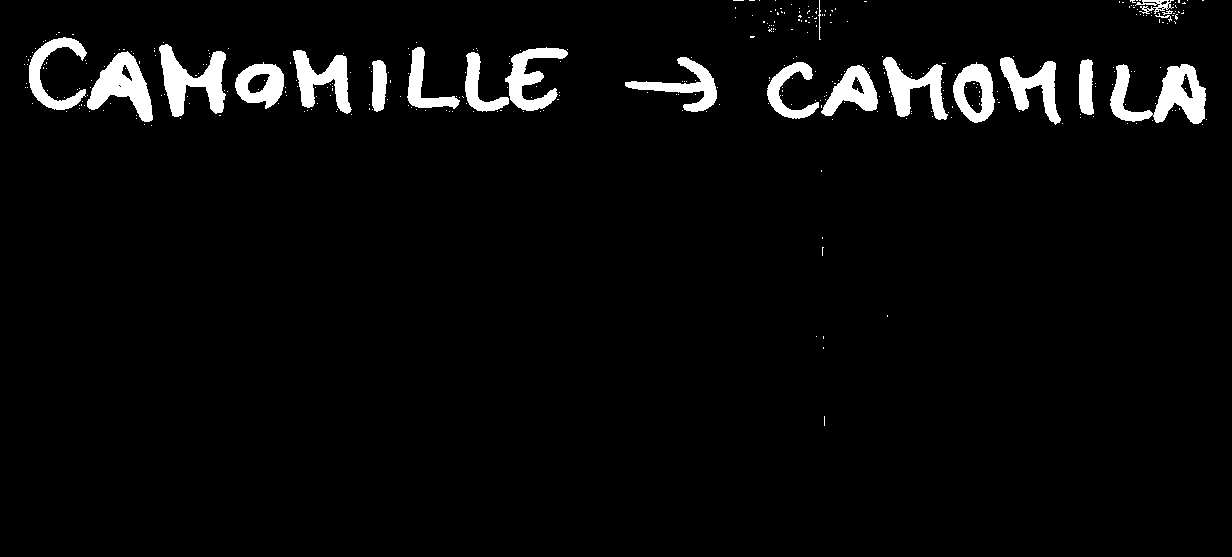 CAMOMILLE → CAMOMILA